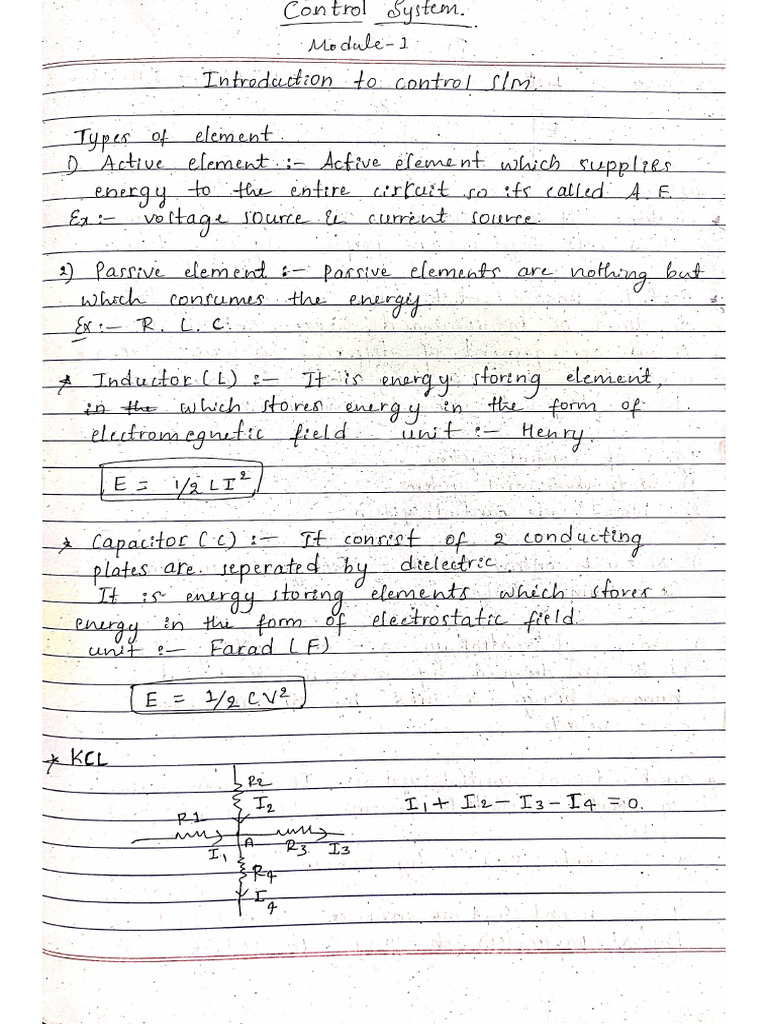 Control System.
Module-1
Introduction to control s/m.
Types of element.
1) Active element :- Active element which supplies
energy to the entire circuit so its called A.E.
Ex :- voltage source & current source.
2) Passive element :- passive elements are nothing but
which consumes the energy.
Ex :- R. L. C.
* Inductor (L) :- It is energy storing element,
in the which stores energy in the form of
electromegnetic field. unit :- Henry.
E = 1/2 LI²
* Capacitor (C) :- It consist of 2 conducting
plates are seperated by dielectric.
It is energy storing elements which stores
energy in the form of electrostatic field.
unit :- Farad (F)
E = 1/2 CV²
* KCL
R2
I2
I1 + I2 - I3 - I4 = 0.
R1
I1 A R3 I3
R4
I4